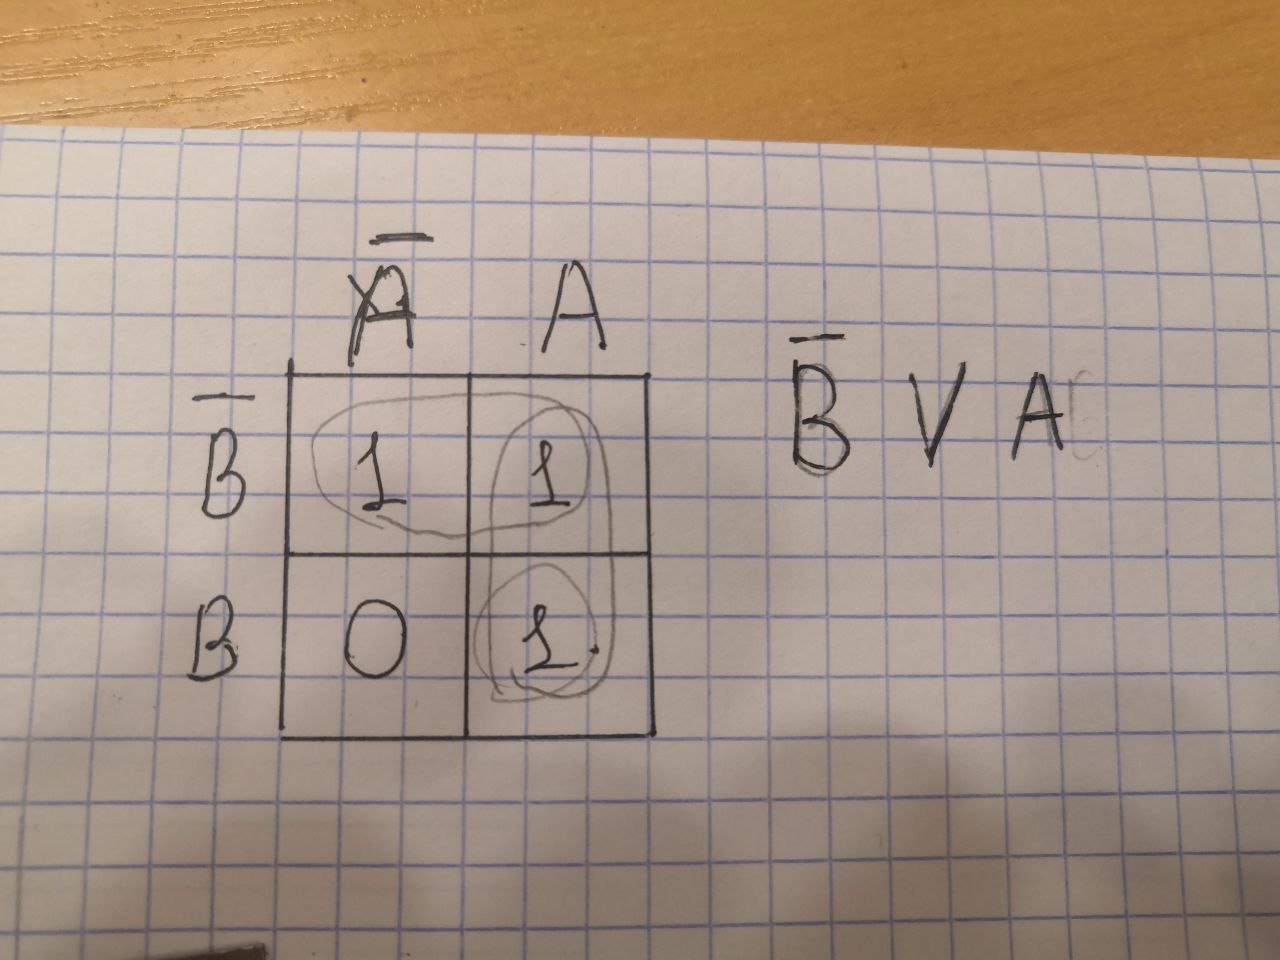 A̅ A
B̅ 1 1
B 0 1
B̅ V A